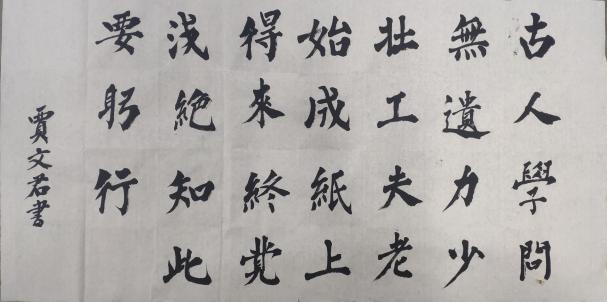 古人學問
無遺力少
壯工夫老
始成紙上
得來終觉
浅絶知此
要躬行
賈文君書